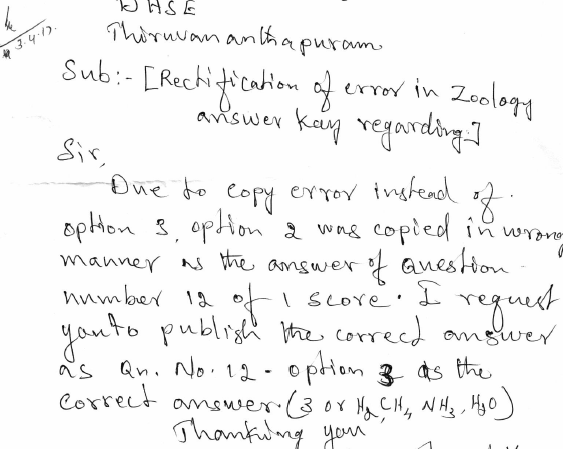 DHSE
3.4.17
Thiruvananthapuram
Sub:- [Rectification of error in Zoology
answer Kay regarding.]
Sir,
Due to copy error instead of
option 3, option 2 was copied in wrong
manner as the answer of question
number 12 of 1 score. I request
you to publish the correct answer
as Qn. No. 12 - option 3 as the
correct answer. (3 or H2, CH4, NH3, H2O)
Thanking you